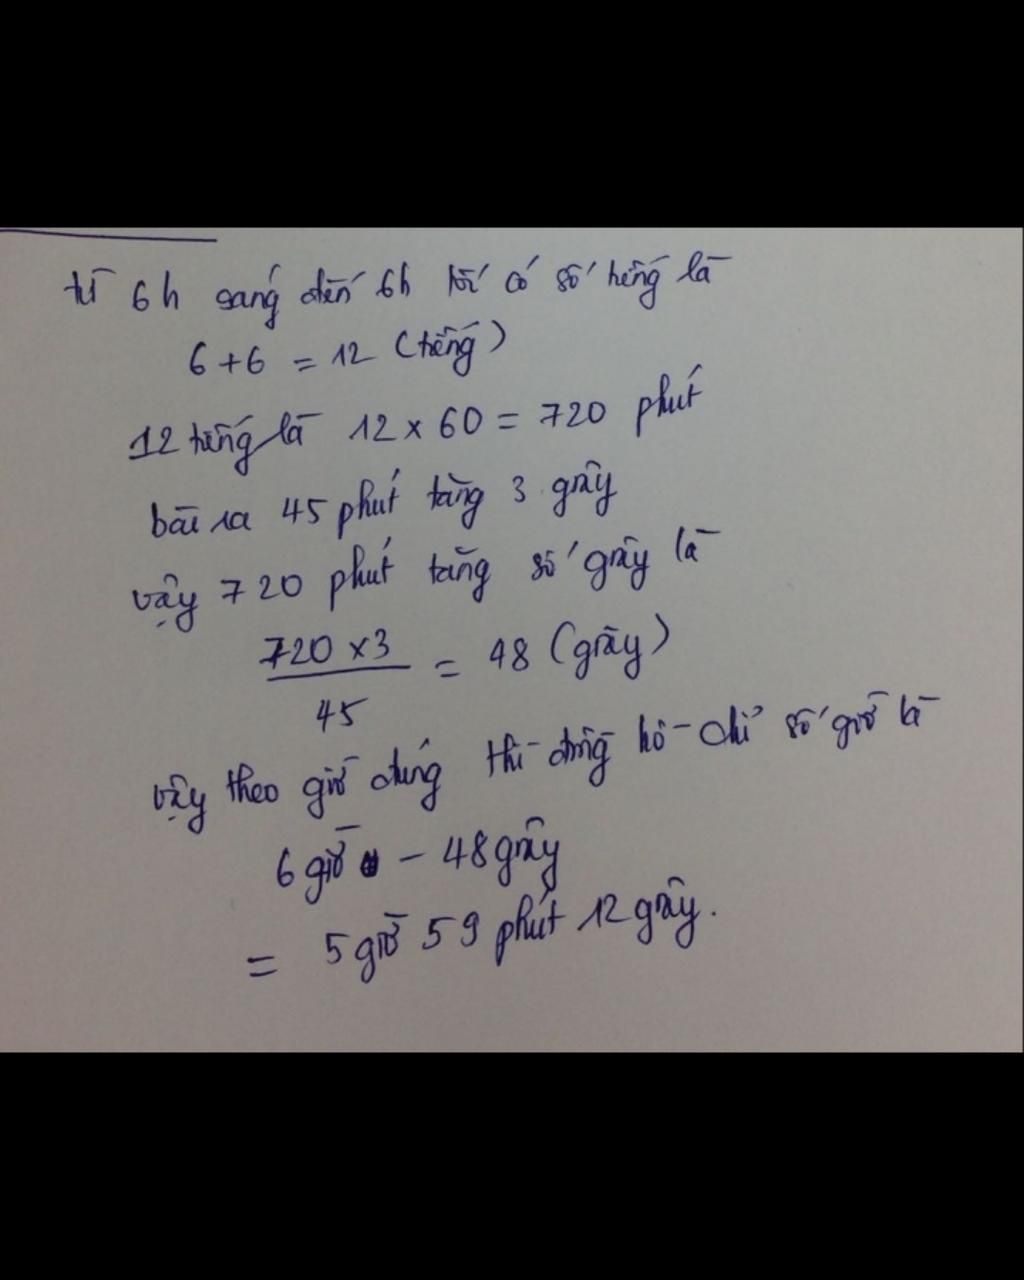 từ 6h sáng đến 6h tối có số tiếng là
6 + 6 = 12 (tiếng)
12 tiếng là 12 x 60 = 720 phút
bài ra 45 phút tăng 3 giây
vậy 720 phút tăng số giây là
720 x 3
45
= 48 (giây)
vậy theo giờ đúng thì đồng hồ chỉ số giờ là
6 giờ - 48 giây
= 5 giờ 59 phút 12 giây.